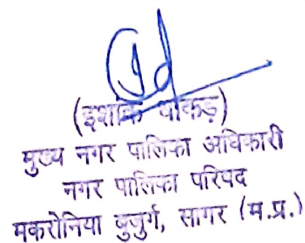 (इशांक धाकड़)
मुख्य नगर पालिका अधिकारी
नगर पालिका परिषद
मकरोनिया बुजुर्ग, सागर (म.प्र.)